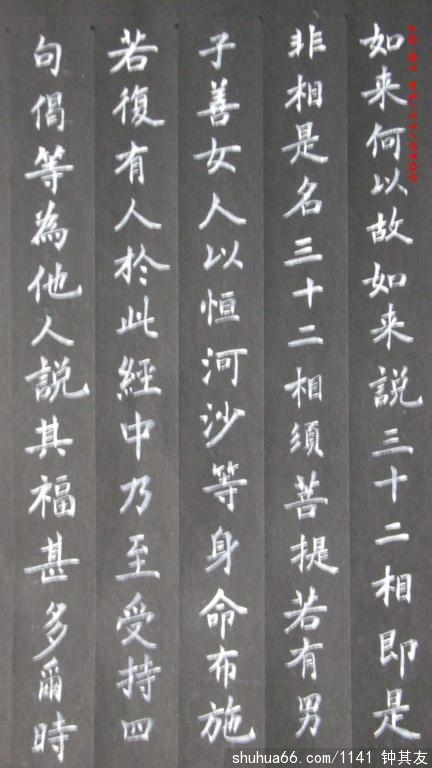 如来何以故如来説三十二相即是
非相是名三十二相須菩提若有男
子善女人以恒河沙等身命布施
若復有人於此經中乃至受持四
句偈等為他人説其福甚多爾時
shuhua66.com/1141 钟其友